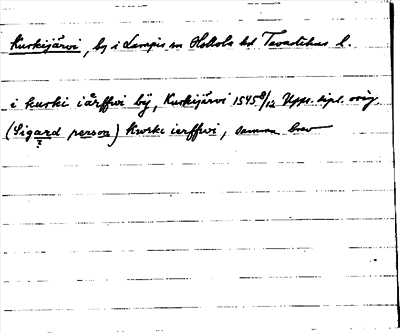 Kurkijärvi, by i Lampis sn Hollola hd Tavastehus l.
i kurki iärffwi bÿ, Kurkijärvi 1545 8/12 Upps. dipl. orig
(Sigard person) Kwrke ierffwi, samma brev